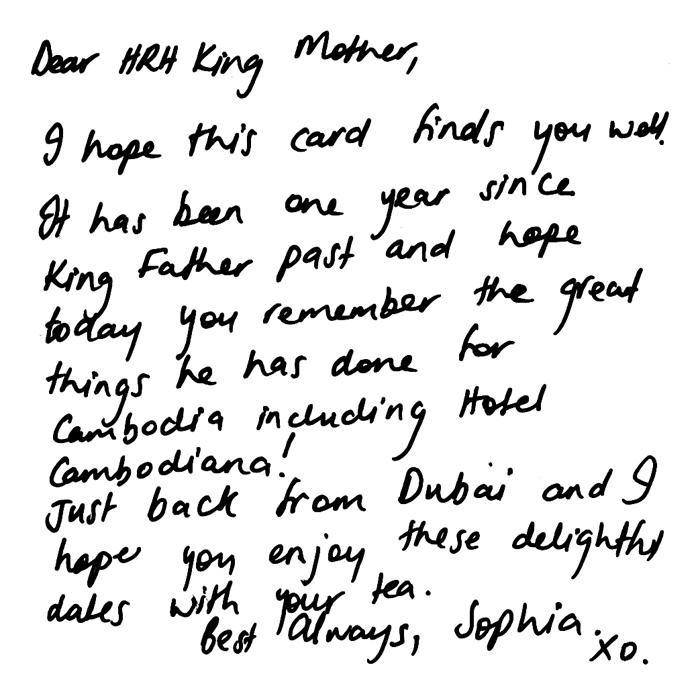 Dear HRH King Mother,
I hope this card finds you well.
It has been one year since
King Father past and hope
today you remember the great
things he has done for
Cambodia including Hotel
Cambodiana!
Just back from Dubai and I
hope you enjoy these delightful
dates with your tea.
Best Always, Sophia.
xo.